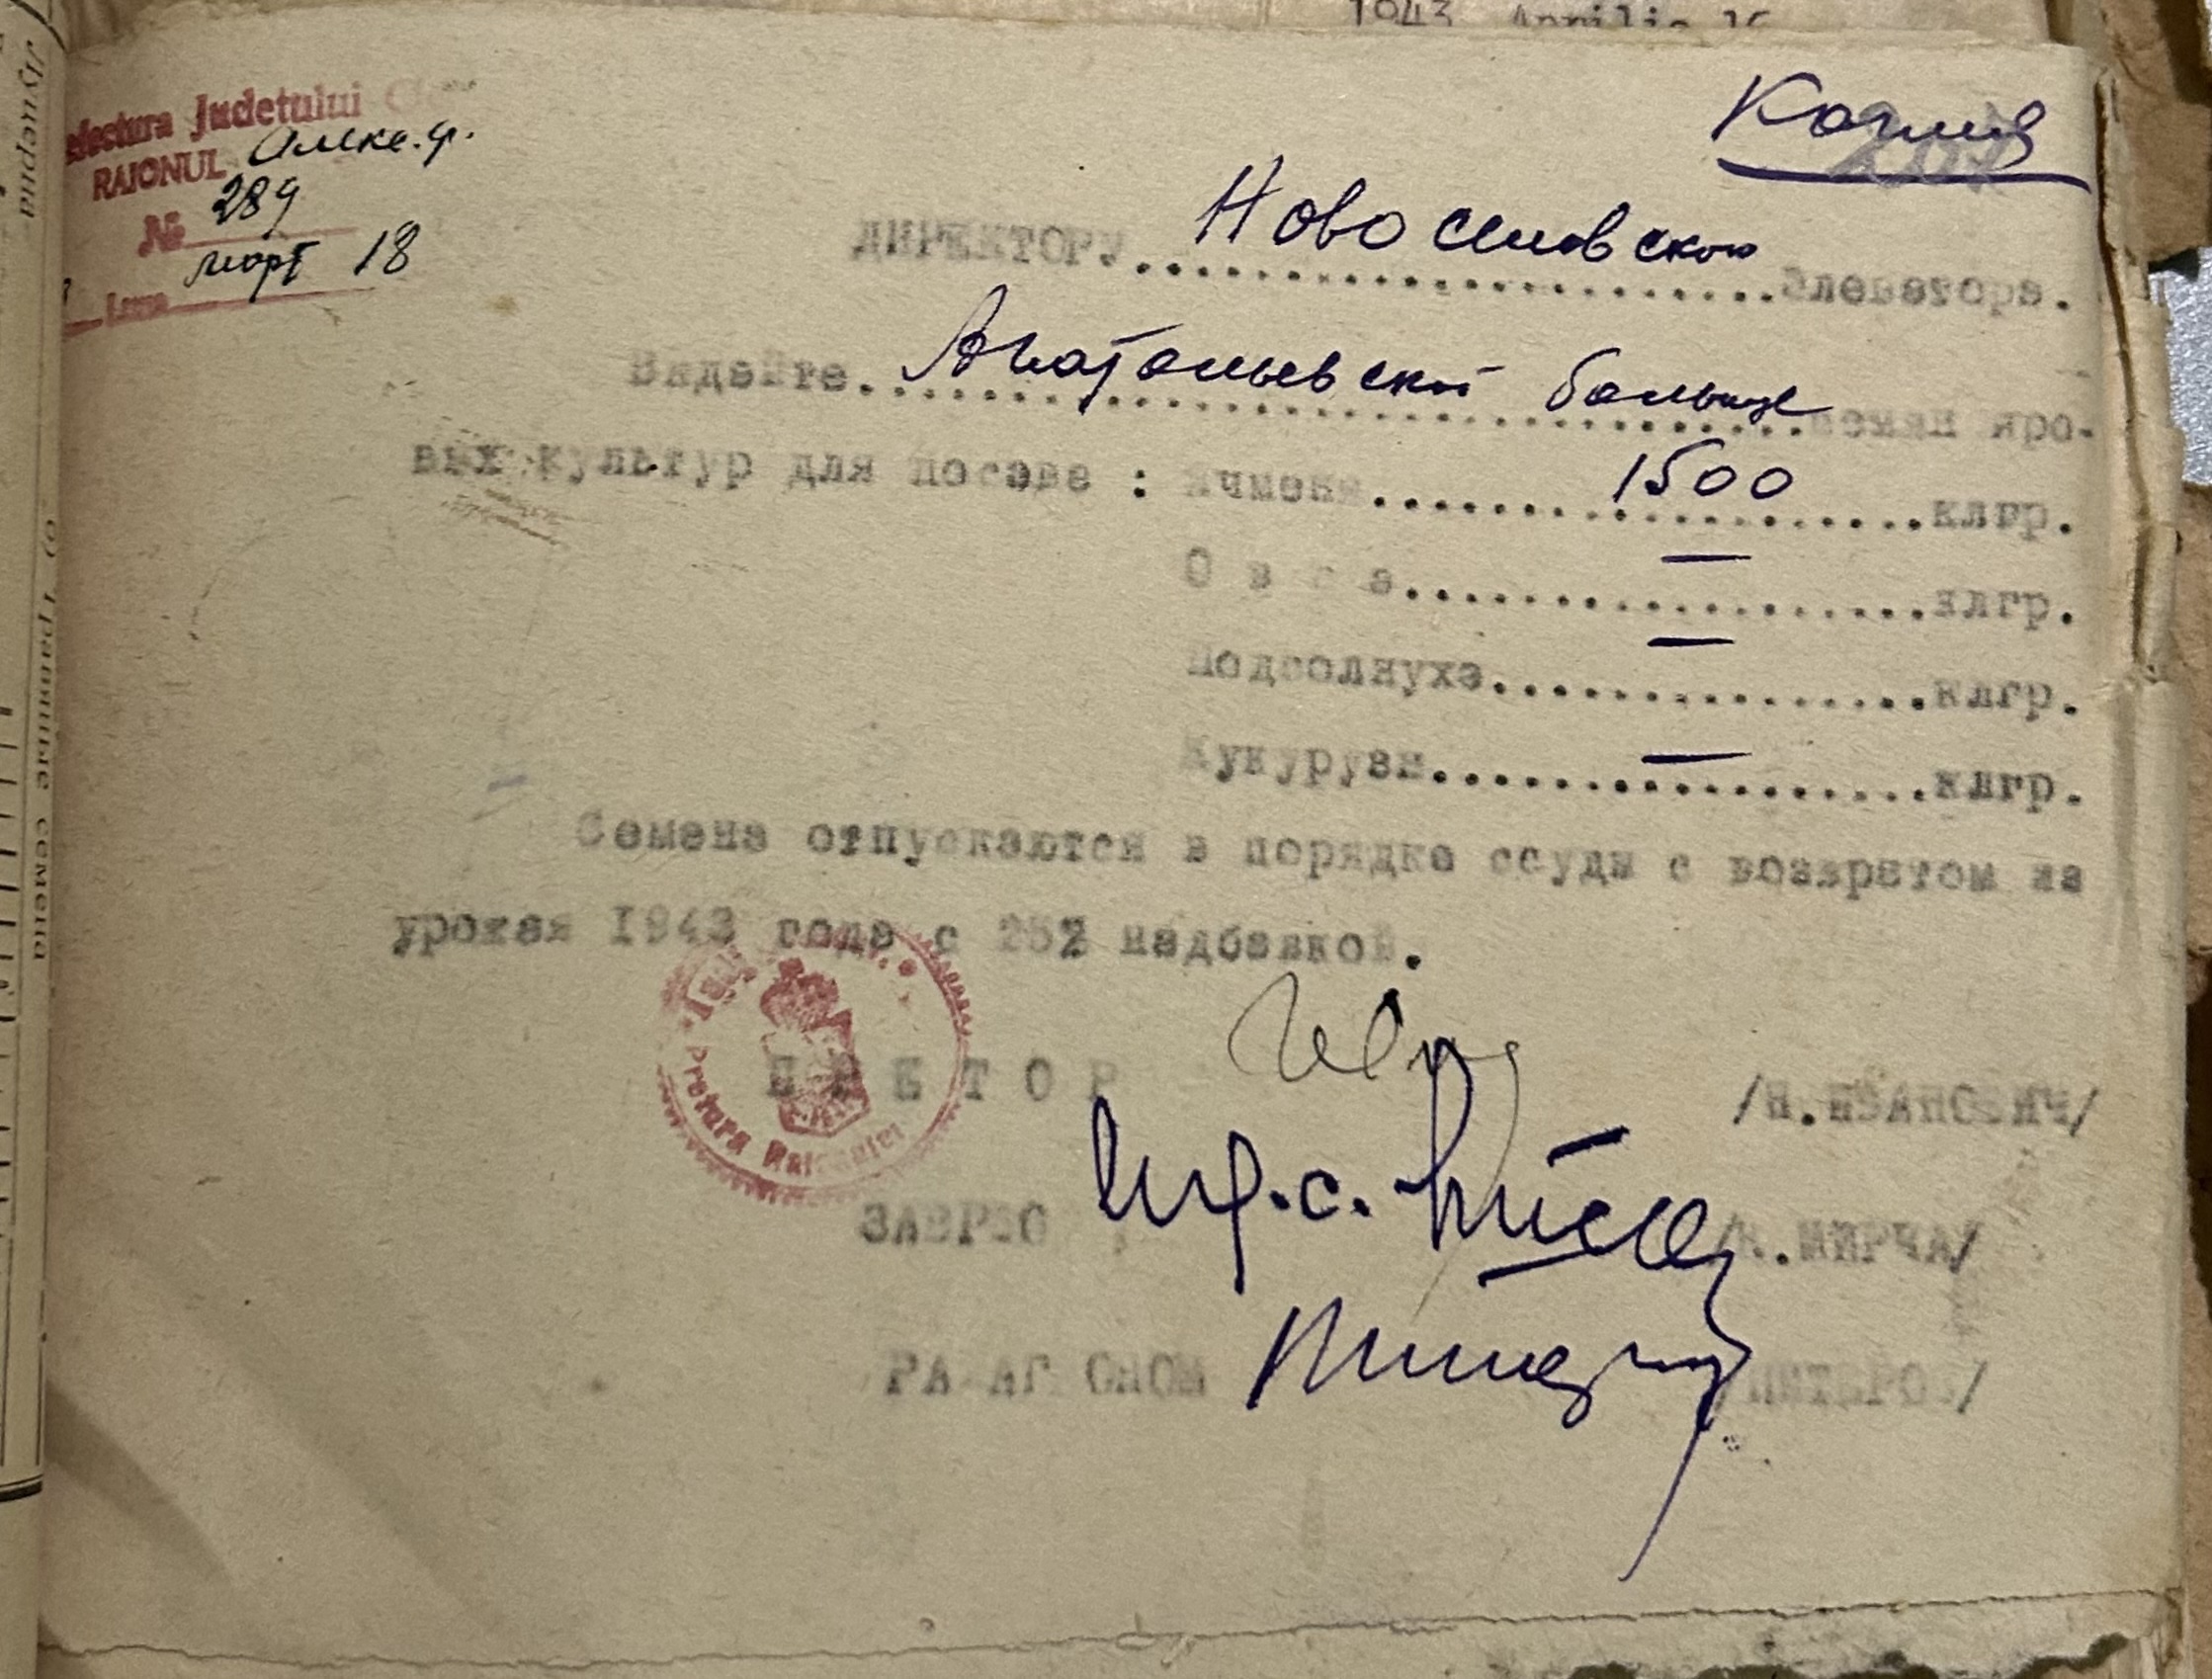 1943 Aprilie 16
Копия
Prefectura Judetului
RAIONUL
№ 289
Luna март 18
ДИРЕКТОРУ Новоселовского элеватора.
Выдайте. Анатольевской больнице семян яро-
вых культур для посева : Ячменя 1500 клгр.
О в с а — клгр.
Подсолнуха — клгр.
Кукурузы — клгр.
Семена отпускаются в порядке ссуды с возвратом из
урожая 1943 года с 25% надбавкой.
ПРЕТОР /Н.ИВАНОВИЧ/
Pretura Raionului
ЗАВРЗО /К.МИРЧА/
РАЙАГРОНОМ /ПИТЕРОВ/
Травяные семена